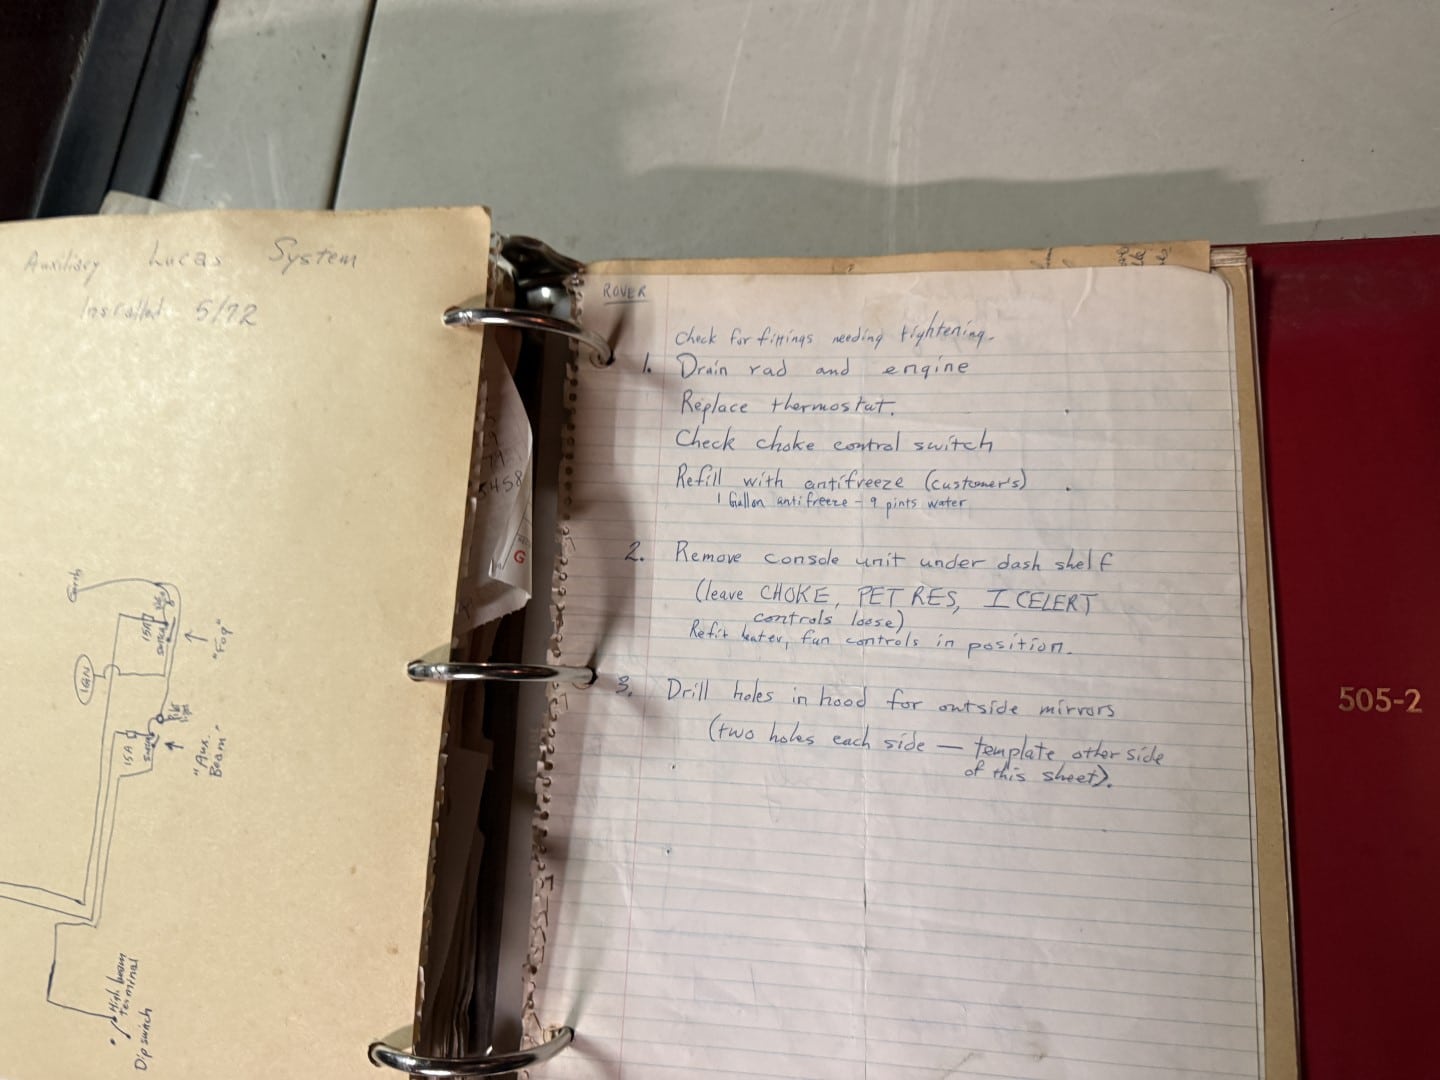 Auxiliary Lucas System
Installed 5/72
Earth
15A
"Fog"
IGN
15A
"Aux.
Beam"
High beam
terminal
Dip switch
5458
G
ROVER
check for fittings needing tightening.
1. Drain rad and engine
Replace thermostat.
Check choke control switch
Refill with antifreeze (customer's)
1 Gallon antifreeze - 9 pints water
2. Remove console unit under dash shelf
(leave CHOKE, PET RES, ICELERT
controls loose)
Refit heater, fan controls in position.
3. Drill holes in hood for outside mirrors
(two holes each side — template other side
of this sheet).
505-2